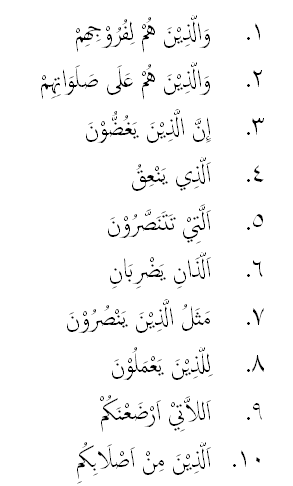 ١. وَالَّذِيْنَ هُمْ لِفُرُوْجِهِمْ
٢. وَالَّذِيْنَ هُمْ عَلَى صَلَوَاتِهِمْ
٣. إِنَّ الَّذِيْنَ يَغُضُّوْنَ
٤. اَلَّذِي يَنْعِقُ
٥. اَلَّتِيْ تَتَنَصَّرُوْنَ
٦. اَلَّذَانِ يَضْرِبَانِ
٧. مَثَلُ الَّذِيْنَ يَنْصُرُوْنَ
٨. لِلَّذِيْنَ يَعْمَلُوْنَ
٩. اَللاَّتِيْ اَرْضَعْنَكُمْ
١٠. اَلَّذِيْنَ مِنْ اَصْلَابِكُمِ